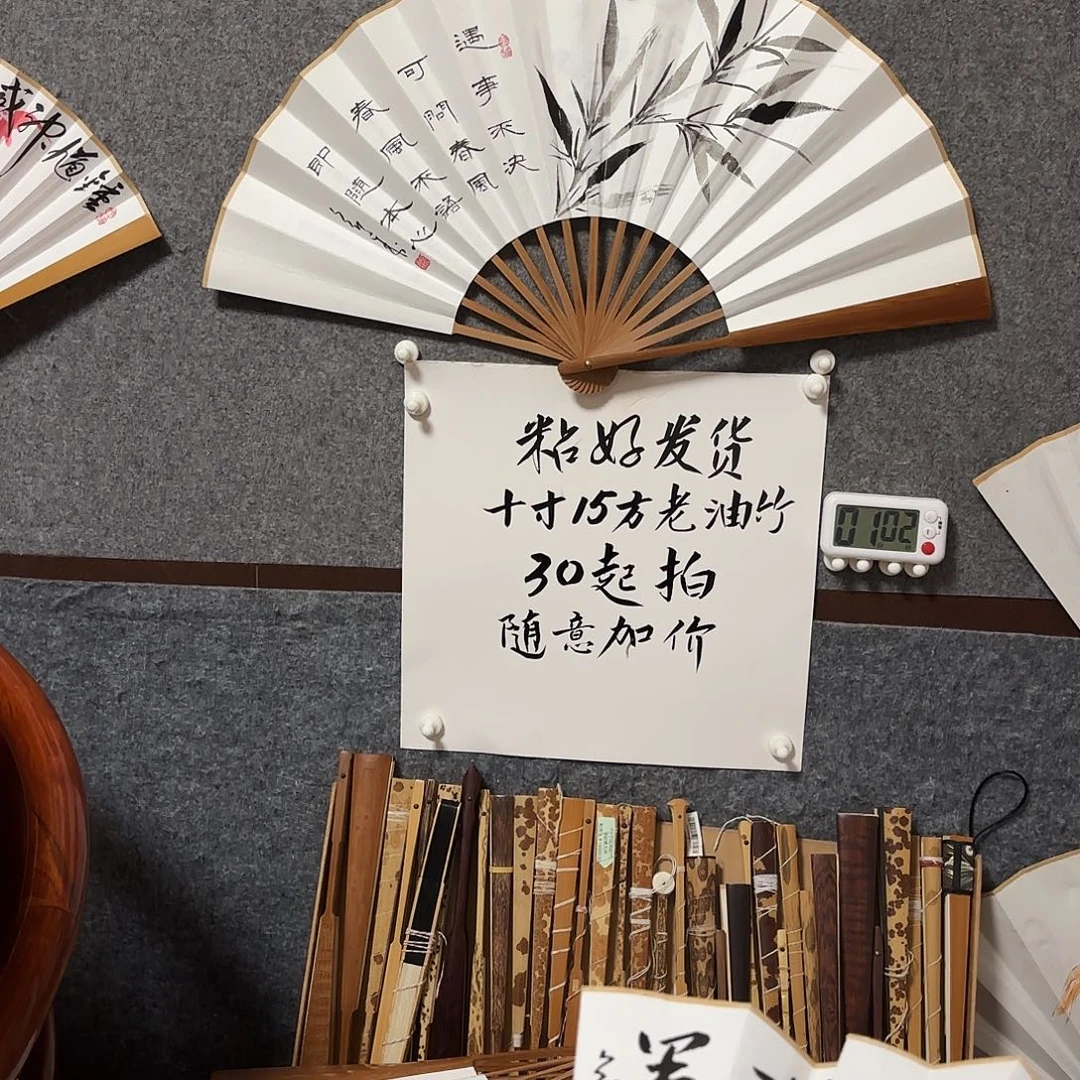 遇事不决
可问春风
春风不语
即随本心
粘好发货
十寸15方老油竹
30起拍
随意加价
01:02